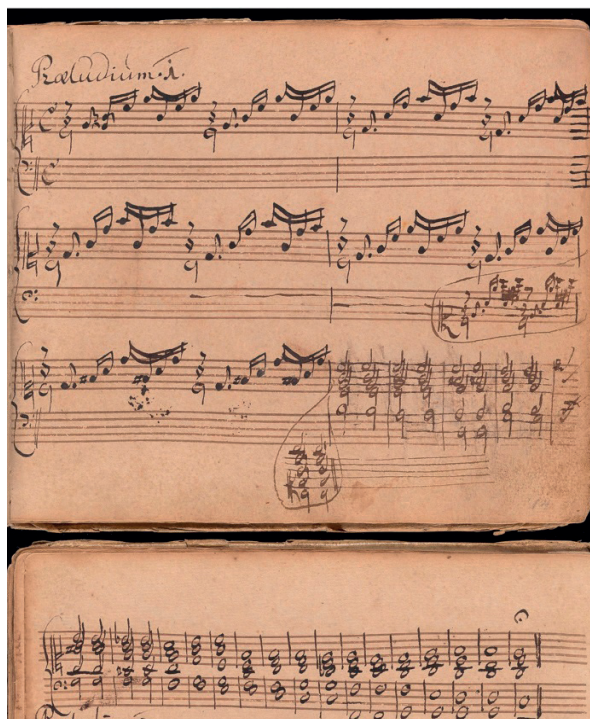 Præludium. 1.